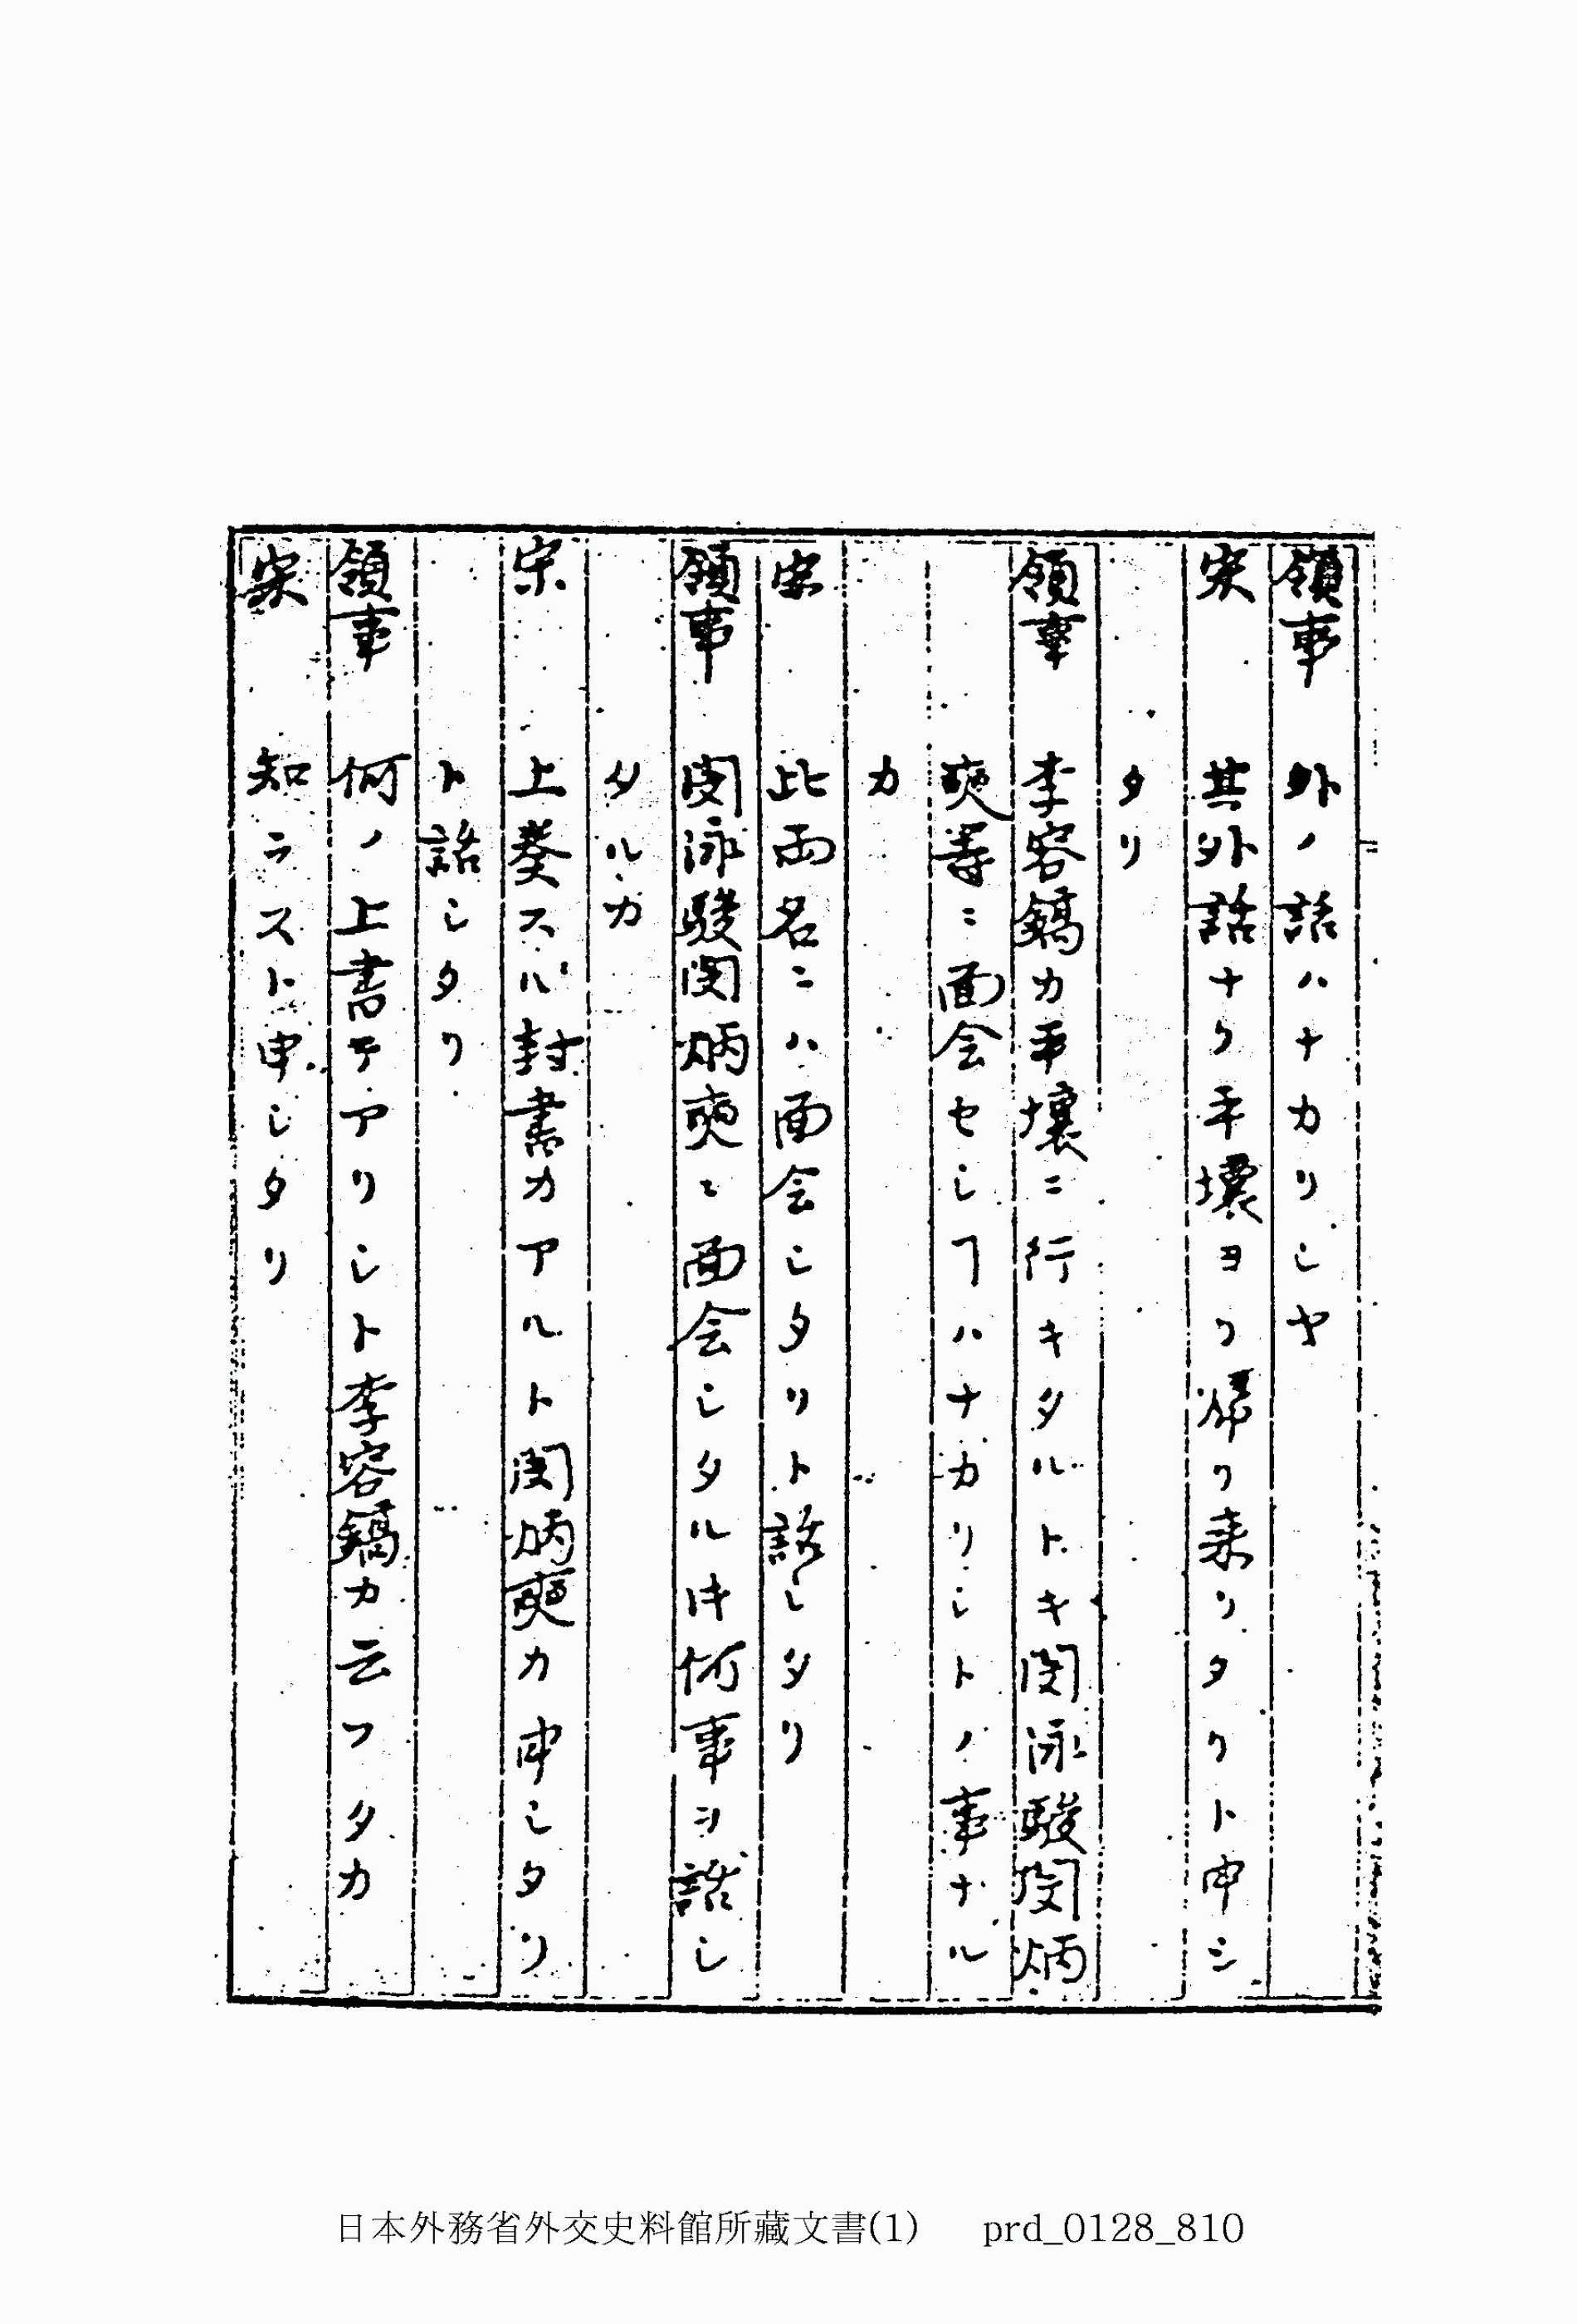 領事　外ノ話ハナカリシヤ
宋　其外話ナク平壌ヨリ帰リ来リタリト申シ
タリ
領事　李容鎬カ平壌ニ行キタルトキ閔泳駿閔炳
奭等ニ面会セシヿハナカリシトノ事ナル
カ
宋　此両名ニハ面会シタリト話シタリ
領事　閔泳駿閔炳奭ニ面会シタル時何事ヲ話シ
タルカ
宋　上奏スル封書カアルト閔炳奭カ申シタリ
ト話シタリ
領事　何ノ上書テアリシト李容鎬カ云フタカ
宋　知ラスト申シタリ
日本外務省外交史料館所藏文書(1)　prd_0128_810